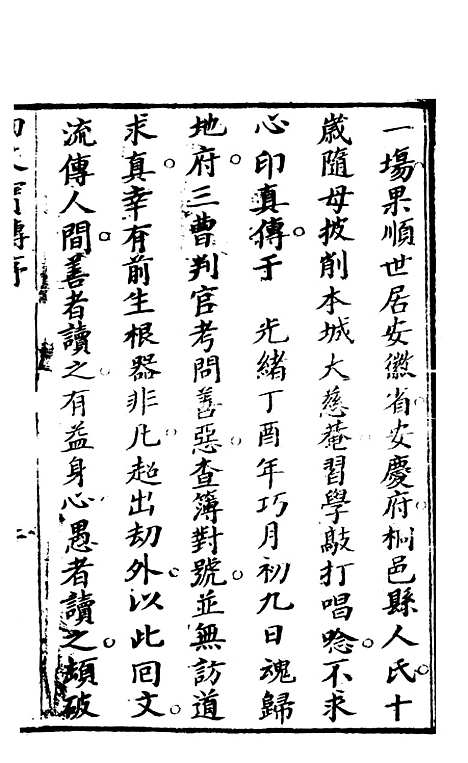 一塲果順世居安徽省安慶府桐邑縣人氏十
歲隨母披削本城大慈菴習學敲打唱唸不求
心印真傳于 光緒丁酉年巧月初九日魂歸
地府三曹判官考問善惡查簿對號並無訪道
求真幸有前生根器非凡超出刼外以此回文
流傳人間善者讀之有益身心愚者讀之頗破
回文寶傳序